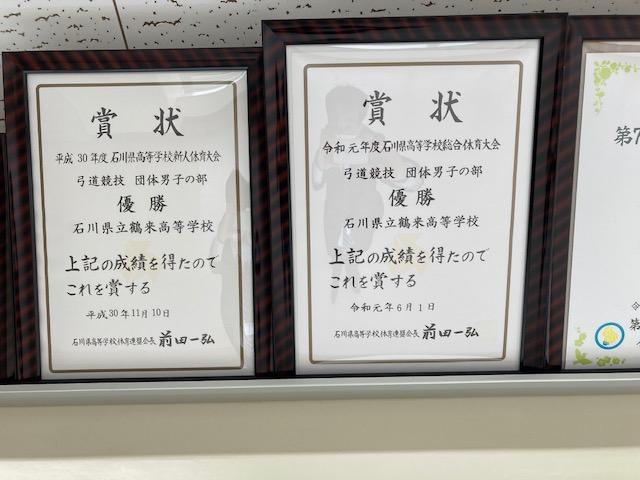 賞状
平成30年度石川県高等学校新人体育大会
弓道競技 団体男子の部
優勝
石川県立鶴来高等学校
上記の成績を得たので
これを賞する
平成30年11月10日
石川県高等学校体育連盟会長 前田一弘
賞状
令和元年度石川県高等学校総合体育大会
弓道競技 団体男子の部
優勝
石川県立鶴来高等学校
上記の成績を得たので
これを賞する
令和元年6月1日
石川県高等学校体育連盟会長 前田一弘
第7
令
第